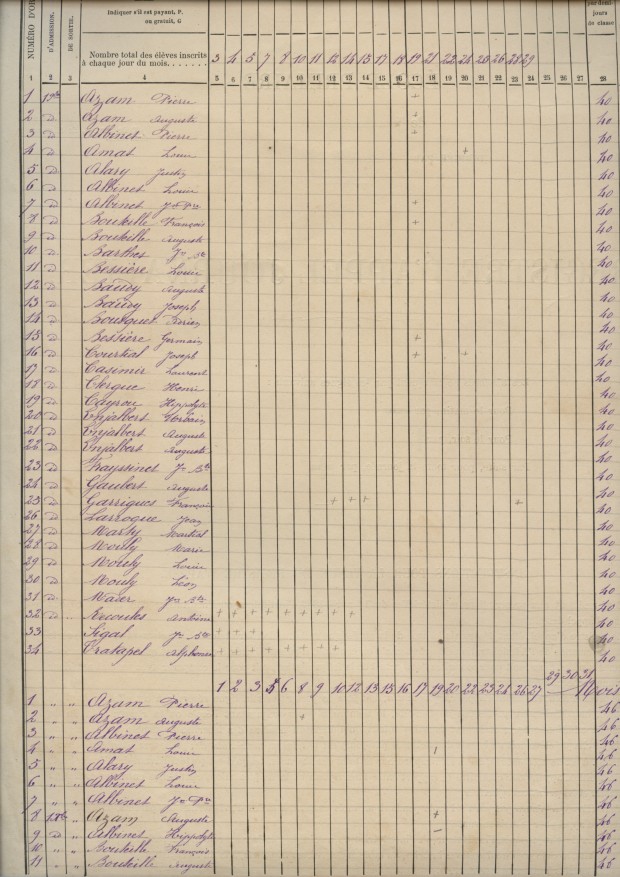 NUMÉRO D'OR
D'ADMISSION.
DE SORTIE.
Indiquer s'il est payant, P.
ou gratuit, G
par demi-
jours
de classe
Nombre total des élèves inscrits
à chaque jour du mois....... 3 4 5 7 8 9 10 11 12 14 15 17 18 19 21 22 24 25 26 28 29
1 2 3 4 5 6 7 8 9 10 11 12 13 14 15 16 17 18 19 20 21 22 23 24 25 26 27 28
1 Azam Pierre + 40
2 d Azam Auguste + 40
3 d Albinet Pierre + 40
4 d Amat Louis + 40
5 d Alary Justin 40
6 d Albinet Louis 40
7 d Albinet Jn Pre + 40
8 d Bouteille François + 40
9 d Bouteille Auguste 40
10 d Barthes Jn Bte 40
11 d Bessière Louis 40
12 d Baudy Auguste 40
13 d Baudy Joseph 40
14 d Bousquet 40
15 d Bessière Germain + 40
16 d Courtial Joseph + + 40
17 d Casimir Laurent 40
18 d Clergue Henri 40
19 d Cayrou Hippolyte 40
20 d Enjalbert Urbain 40
21 d Enjalbert Auguste 40
22 d Enjalbert Auguste 40
23 d Frayssinet Jn Bte 40
24 d Gaubert Auguste 40
25 d Garrigues François + + + + 40
26 d Larroque Jean 40
27 d Marty Martial 40
28 d Mouly Marie 40
29 d Mouly Louis 40
30 d Mouly Léon 40
31 d Maier Jn Bte 40
32 d Recoules Antoine + + + + + + + + + 40
33 Sigal Jn Bte + + + 40
34 Tratapel Alphonse + + + + + + + + 40
1 2 3 4 5 6 8 9 10 12 13 15 16 17 19 20 22 23 24 26 27 29 30 31 Mois
1 " " Azam Pierre 46
2 " " Azam Auguste + 46
3 " " Albinet Pierre 46
4 " " Amat Louis 46
5 " " Alary Justin 46
6 " " Albinet Louis 46
7 " " Albinet Jn Pre 46
8 " Azam Auguste + 46
9 d " Albinet Hippolyte 46
10 " " Bouteille François 46
11 " " Bouteille Auguste 46